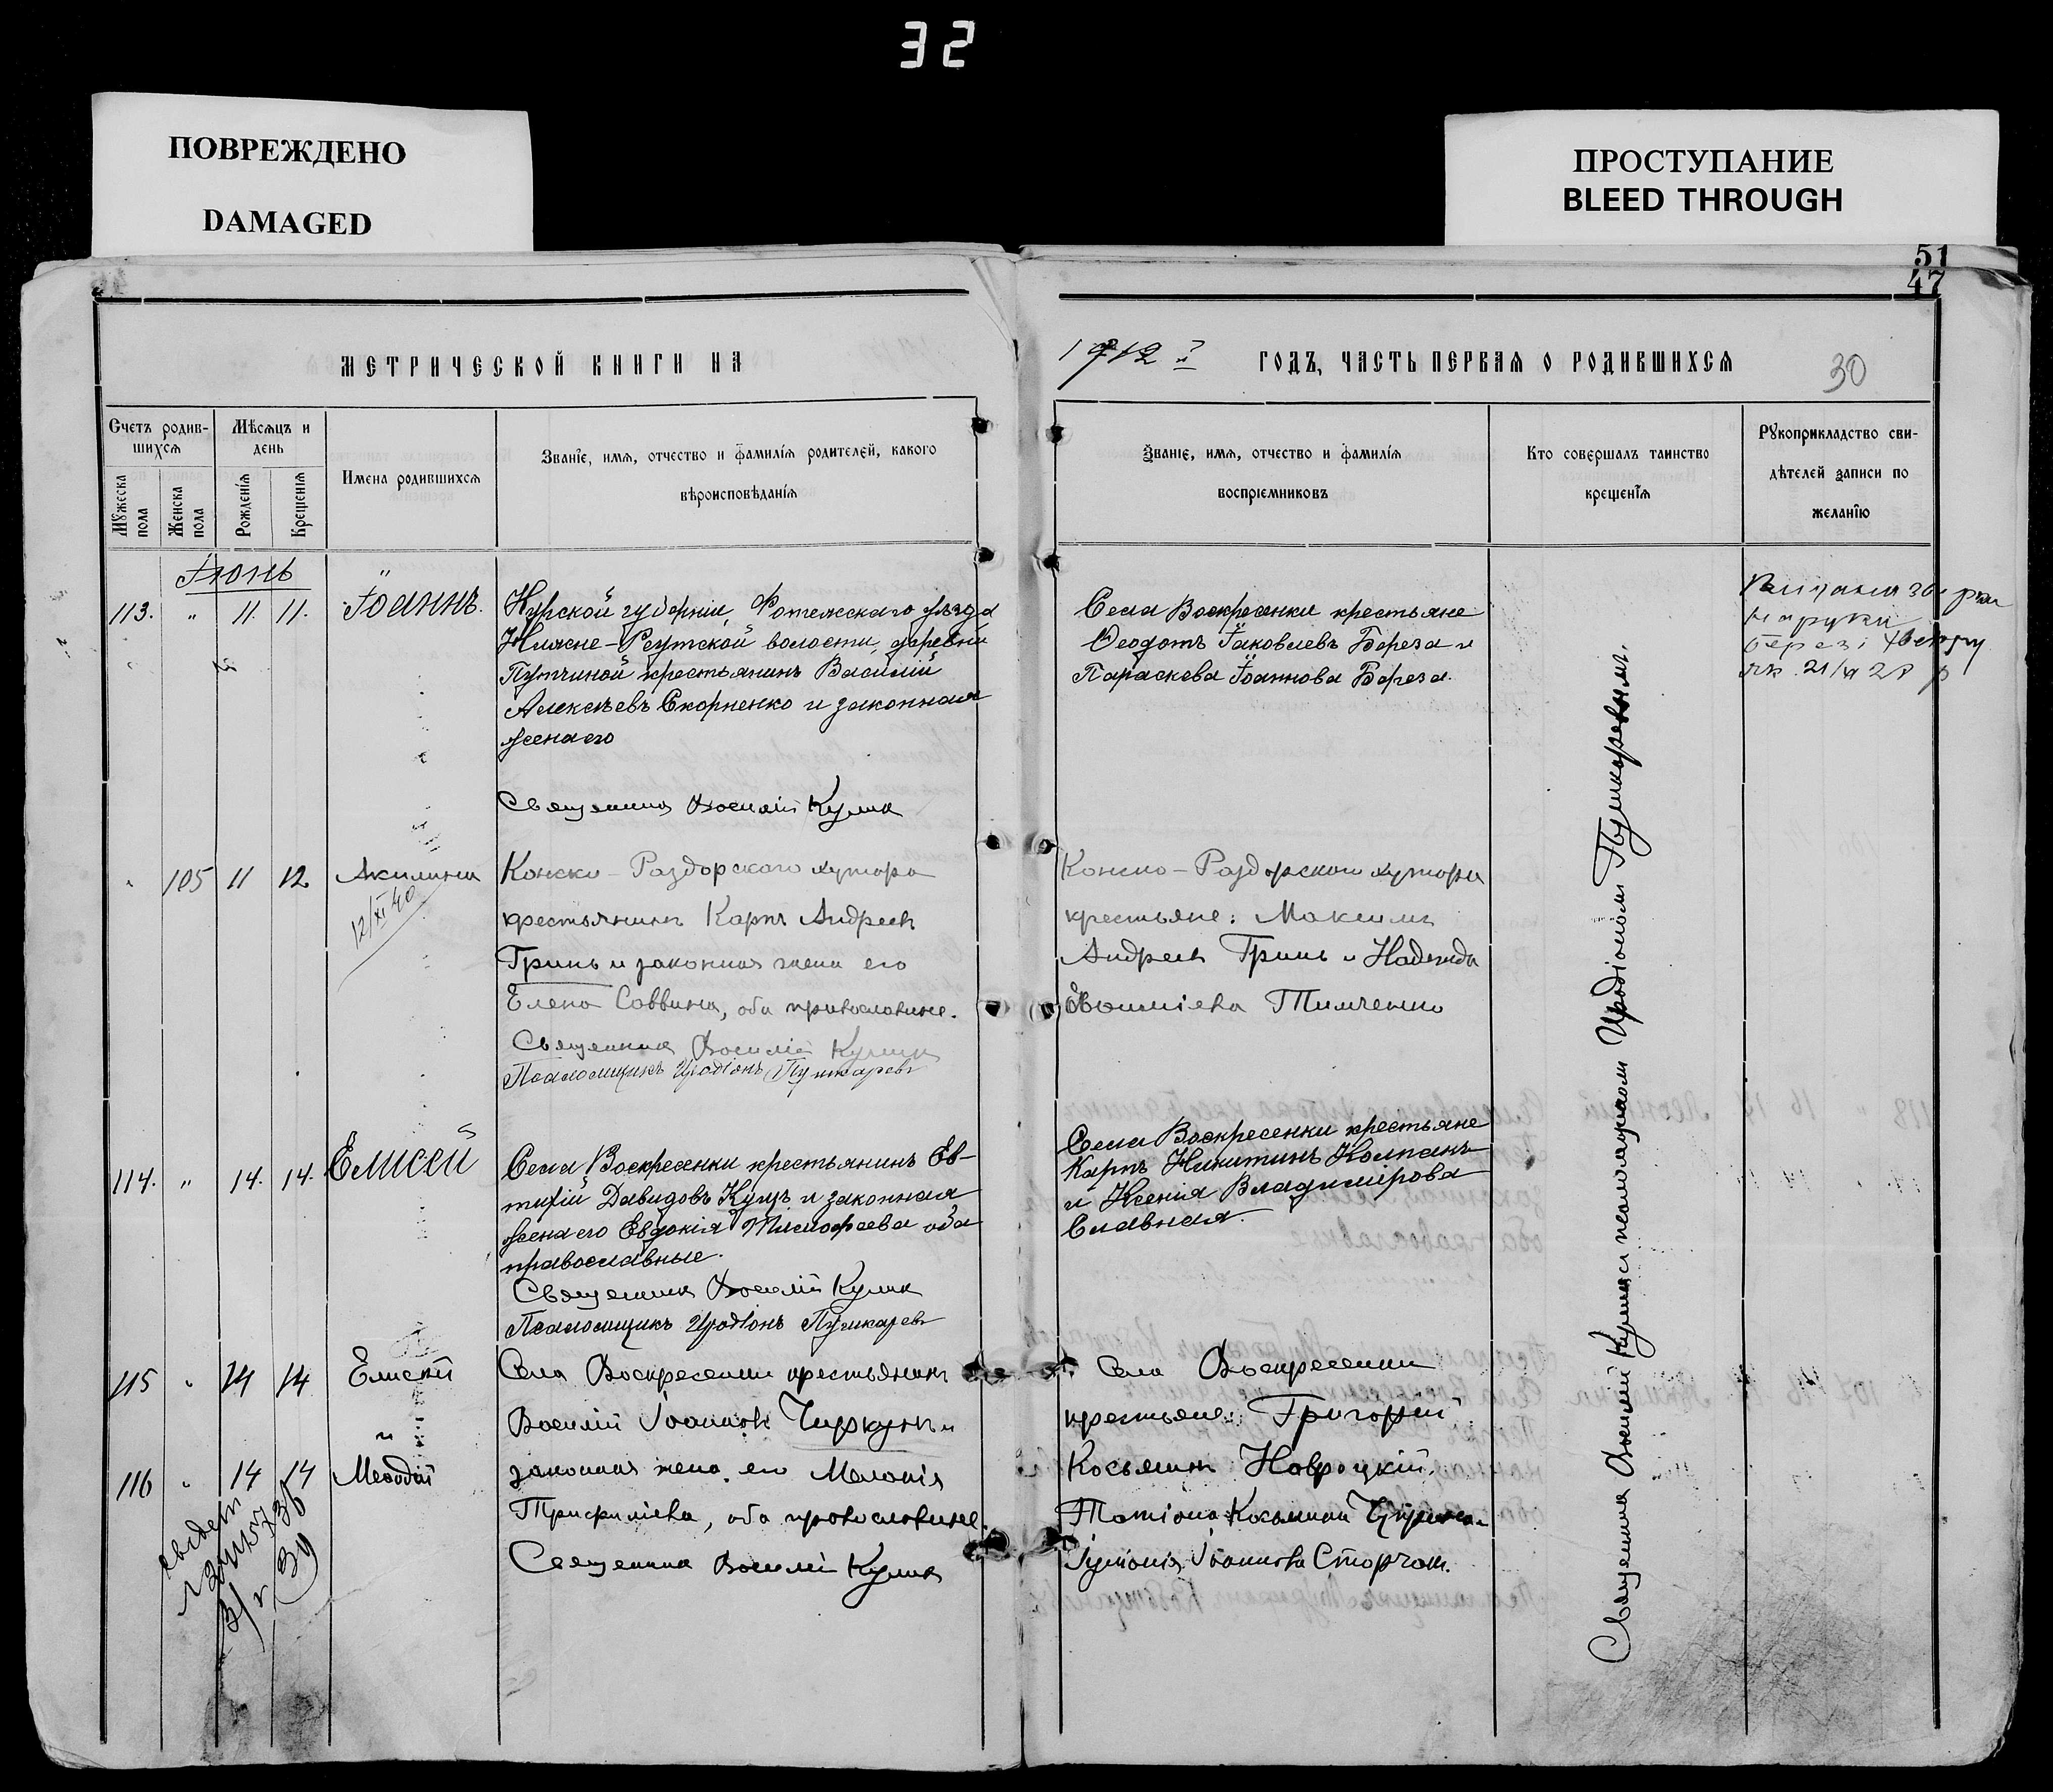 32
ПОВРЕЖДЕНО
DAMAGED
ПРОСТУПАНИЕ
BLEED THROUGH
51
47
МЕТРИЧЕСКОЙ КНИГИ НА
1912 г. ГОДЪ, ЧАСТЬ ПЕРВАЯ О РОДИВШИХСЯ
30
Счетъ родив-
шихся
Мѣсяцъ и
день
Мужеска пола
Женска пола
Рожденія
Крещенія
Имена родившихся
Званіе, имя, отчество и фамилія родителей, какого
вѣроисповѣданія
Званіе, имя, отчество и фамилія
воспріемниковъ
Кто совершалъ таинство
крещенія
Рукоприкладство сви-
дѣтелей записи по
желанію
Іюнь
113. " 11. 11. Іоаннъ.
Курской губерніи, Фотежскаго уѣзда
Нижне-Реутской волости, деревни
Путчиной крестьянинъ Василій
Алексѣевъ Скорненко и законная
жена его
Священникъ Василій Кулик
Села Воскресенки крестьяне
Ѳеодотъ Іаковлевъ Береза и
Параскева Іоаннова Береза.
на руки
21/VI 28 р
105 11 12 Акилина
12/XI 40
Конско-Раздорскаго хутора
крестьянинъ Карпъ Андреевъ
Гринь и законная жена его
Елена Саввина, оба православные.
Священникъ Василій Кулик
Псаломщикъ Иродіонъ Пушкаревъ
Конско-Раздорскаго хутора
крестьяне: Максимъ
Андреевъ Гринь и Надежда
Тимченко
114. " 14. 14. Елисей
Села Воскресенки крестьянинъ Ев-
тихій Давидовъ Куцъ и законная
жена его Евдокія Тимофеева оба
православные.
Священникъ Василій Кулик
Псаломщикъ Иродіонъ Пушкаревъ
Села Воскресенки крестьяне
Карпъ Никитинъ Колпакъ
и Ксенія Владимірова
Славная.
115 " 14 14 Елисей
и
116 " 14 14 Меѳодій
Села Воскресенки крестьянинъ
Василій Іоанновъ Чиркунъ и
законная жена его Меланія
Трифиліева, оба православные.
Священникъ Василій Кулик
Села Воскресенки
крестьяне: Григорій
Косьминъ Навроцкій,
Татіана Косьмина
Іуліанія Іоаннова Сторчак.
39
Священникъ Василій Куликъ съ псаломщикомъ Иродіономъ Пушкаревымъ.